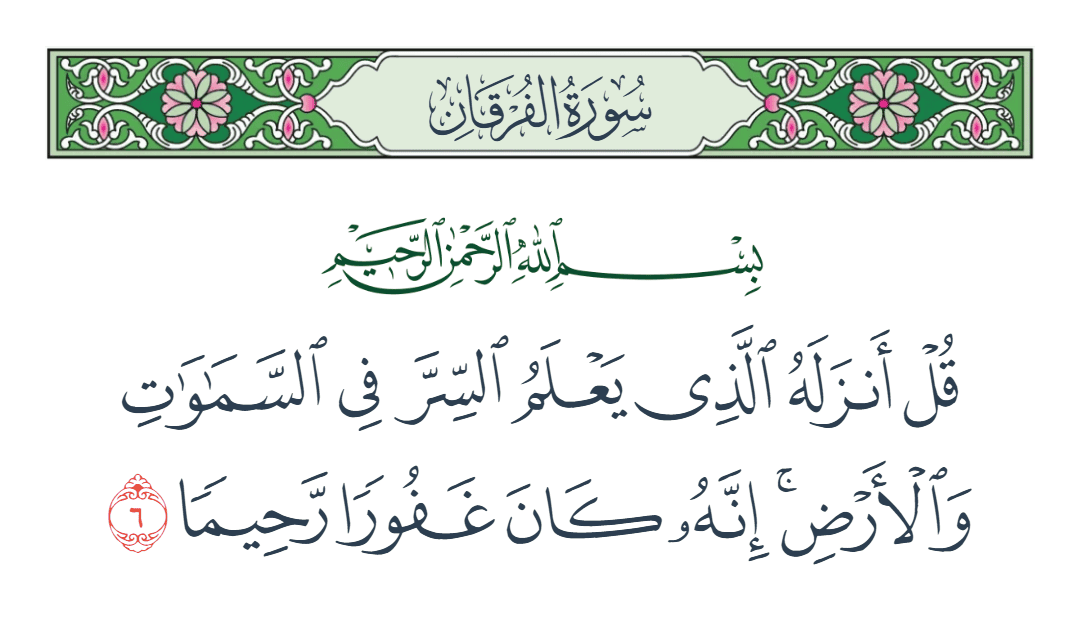 سُورَةُ الفُرْقَانِ
بِسْمِ ٱللَّهِ ٱلرَّحْمَٰنِ ٱلرَّحِيمِ
قُلْ أَنزَلَهُ ٱلَّذِى يَعْلَمُ ٱلسِّرَّ فِى ٱلسَّمَـٰوَٰتِ
وَٱلْأَرْضِ ۚ إِنَّهُۥ كَانَ غَفُورًا رَّحِيمًا ٦